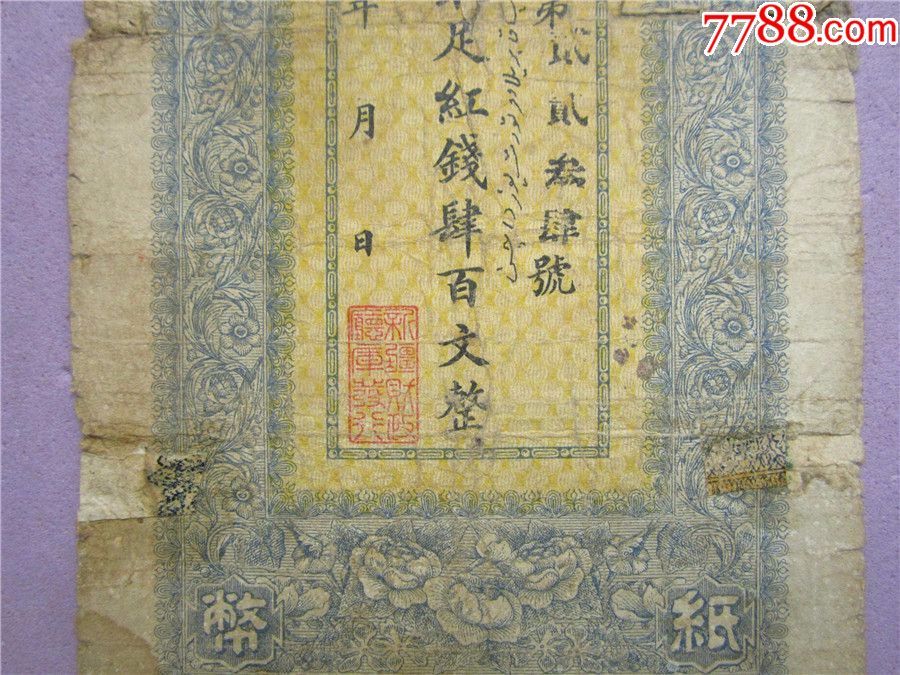 7788.com
第貳貳叁肆號
足紅錢肆百文整
年月日
新疆財政廳庫發行
紙幣